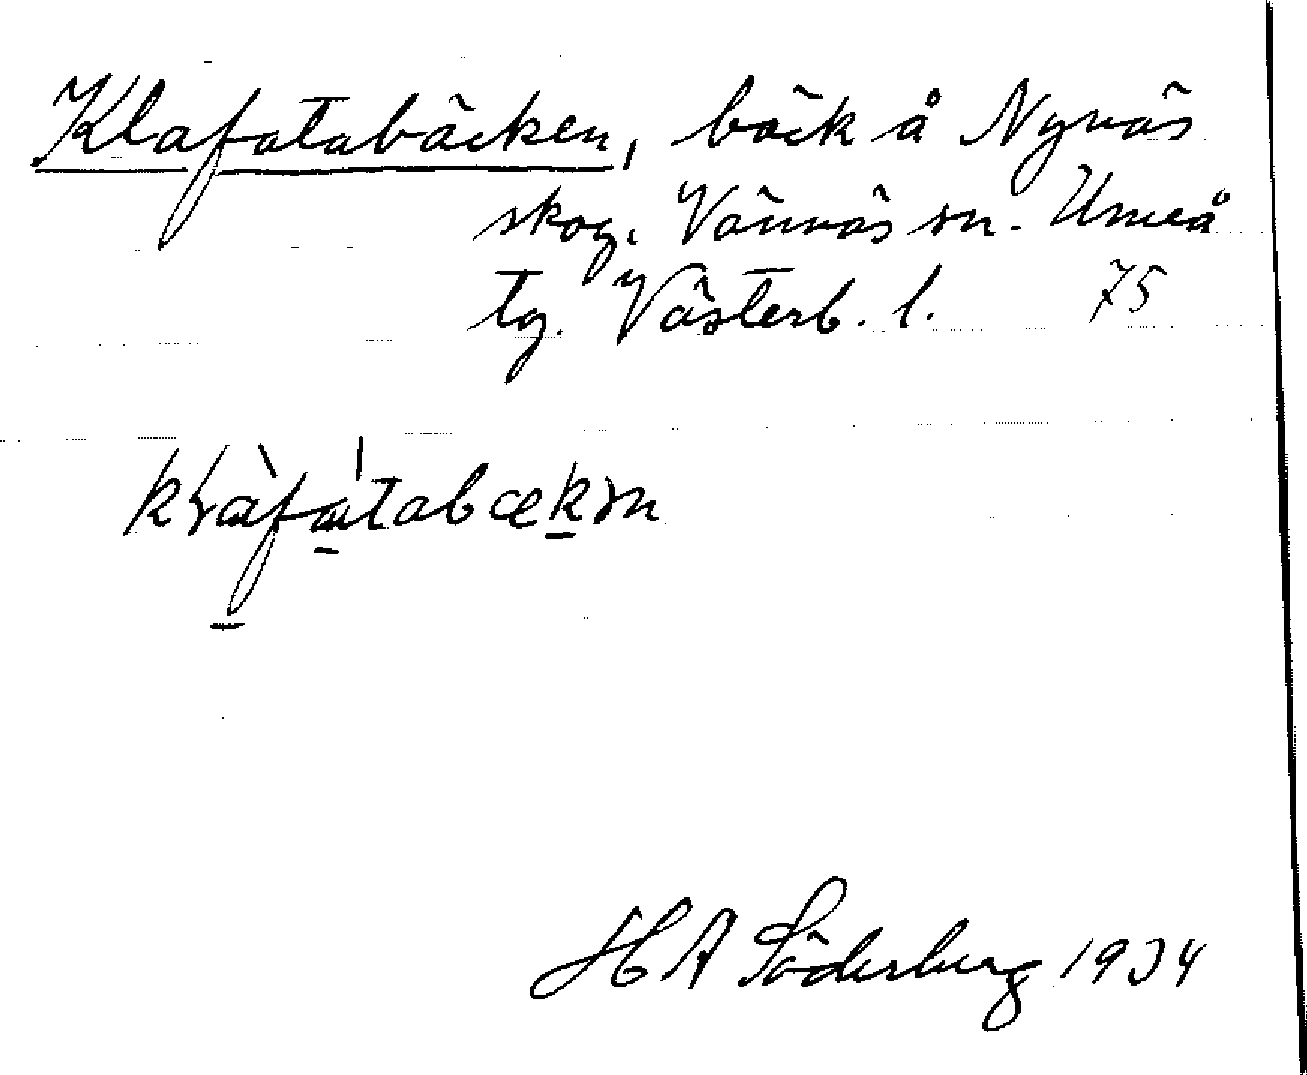 Klafatabäcken, bäck å Nynäs
skog. Vännäs sn. Umeå
tg. Västerb. l. 75
H A Söderberg 1934